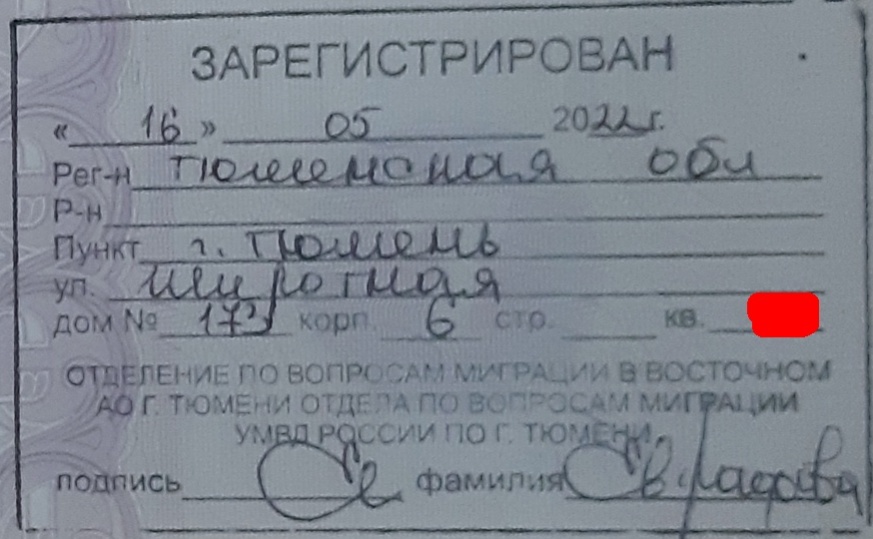 ЗАРЕГИСТРИРОВАН
« 16 » 05 2022 г.
Рег-н Тюменская обл
Р-н
Пункт г. Тюмень
ул. Широтная
дом № 173 корп. 6 стр. кв.
ОТДЕЛЕНИЕ ПО ВОПРОСАМ МИГРАЦИИ В ВОСТОЧНОМ
АО Г. ТЮМЕНИ ОТДЕЛА ПО ВОПРОСАМ МИГРАЦИИ
УМВД РОССИИ ПО Г. ТЮМЕНИ
подпись фамилия